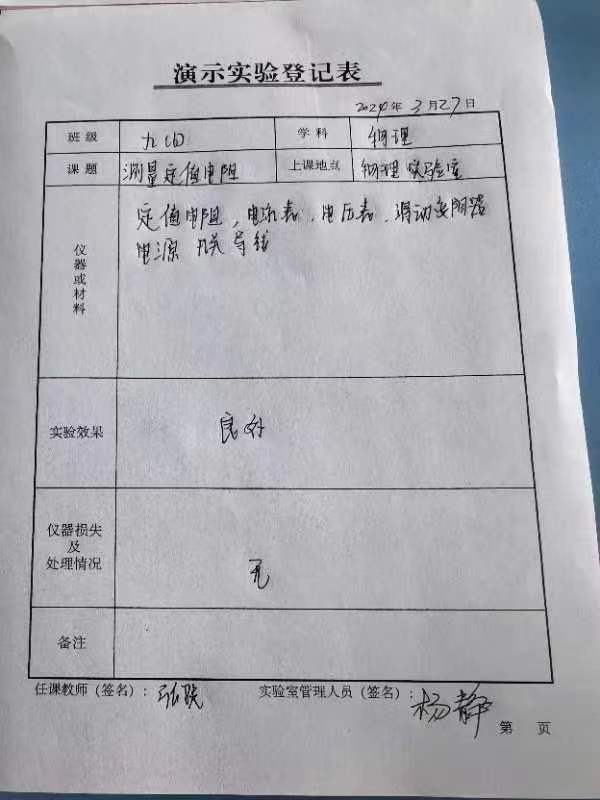 演示实验登记表
2024年3月27日
班级 九(四) 学科 物理
课题 测量定值电阻 上课地点 物理实验室
仪器或材料
定值电阻，电流表，电压表，滑动变阻器
电源 开关 导线
实验效果 良好
仪器损失
及
处理情况
无
备注
任课教师（签名）：张 实验室管理人员（签名）：杨静
第 页